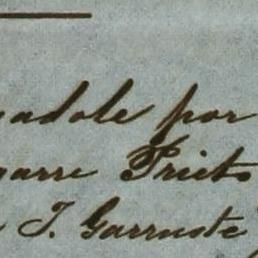 adole por
garre Prieto
J. Garruste